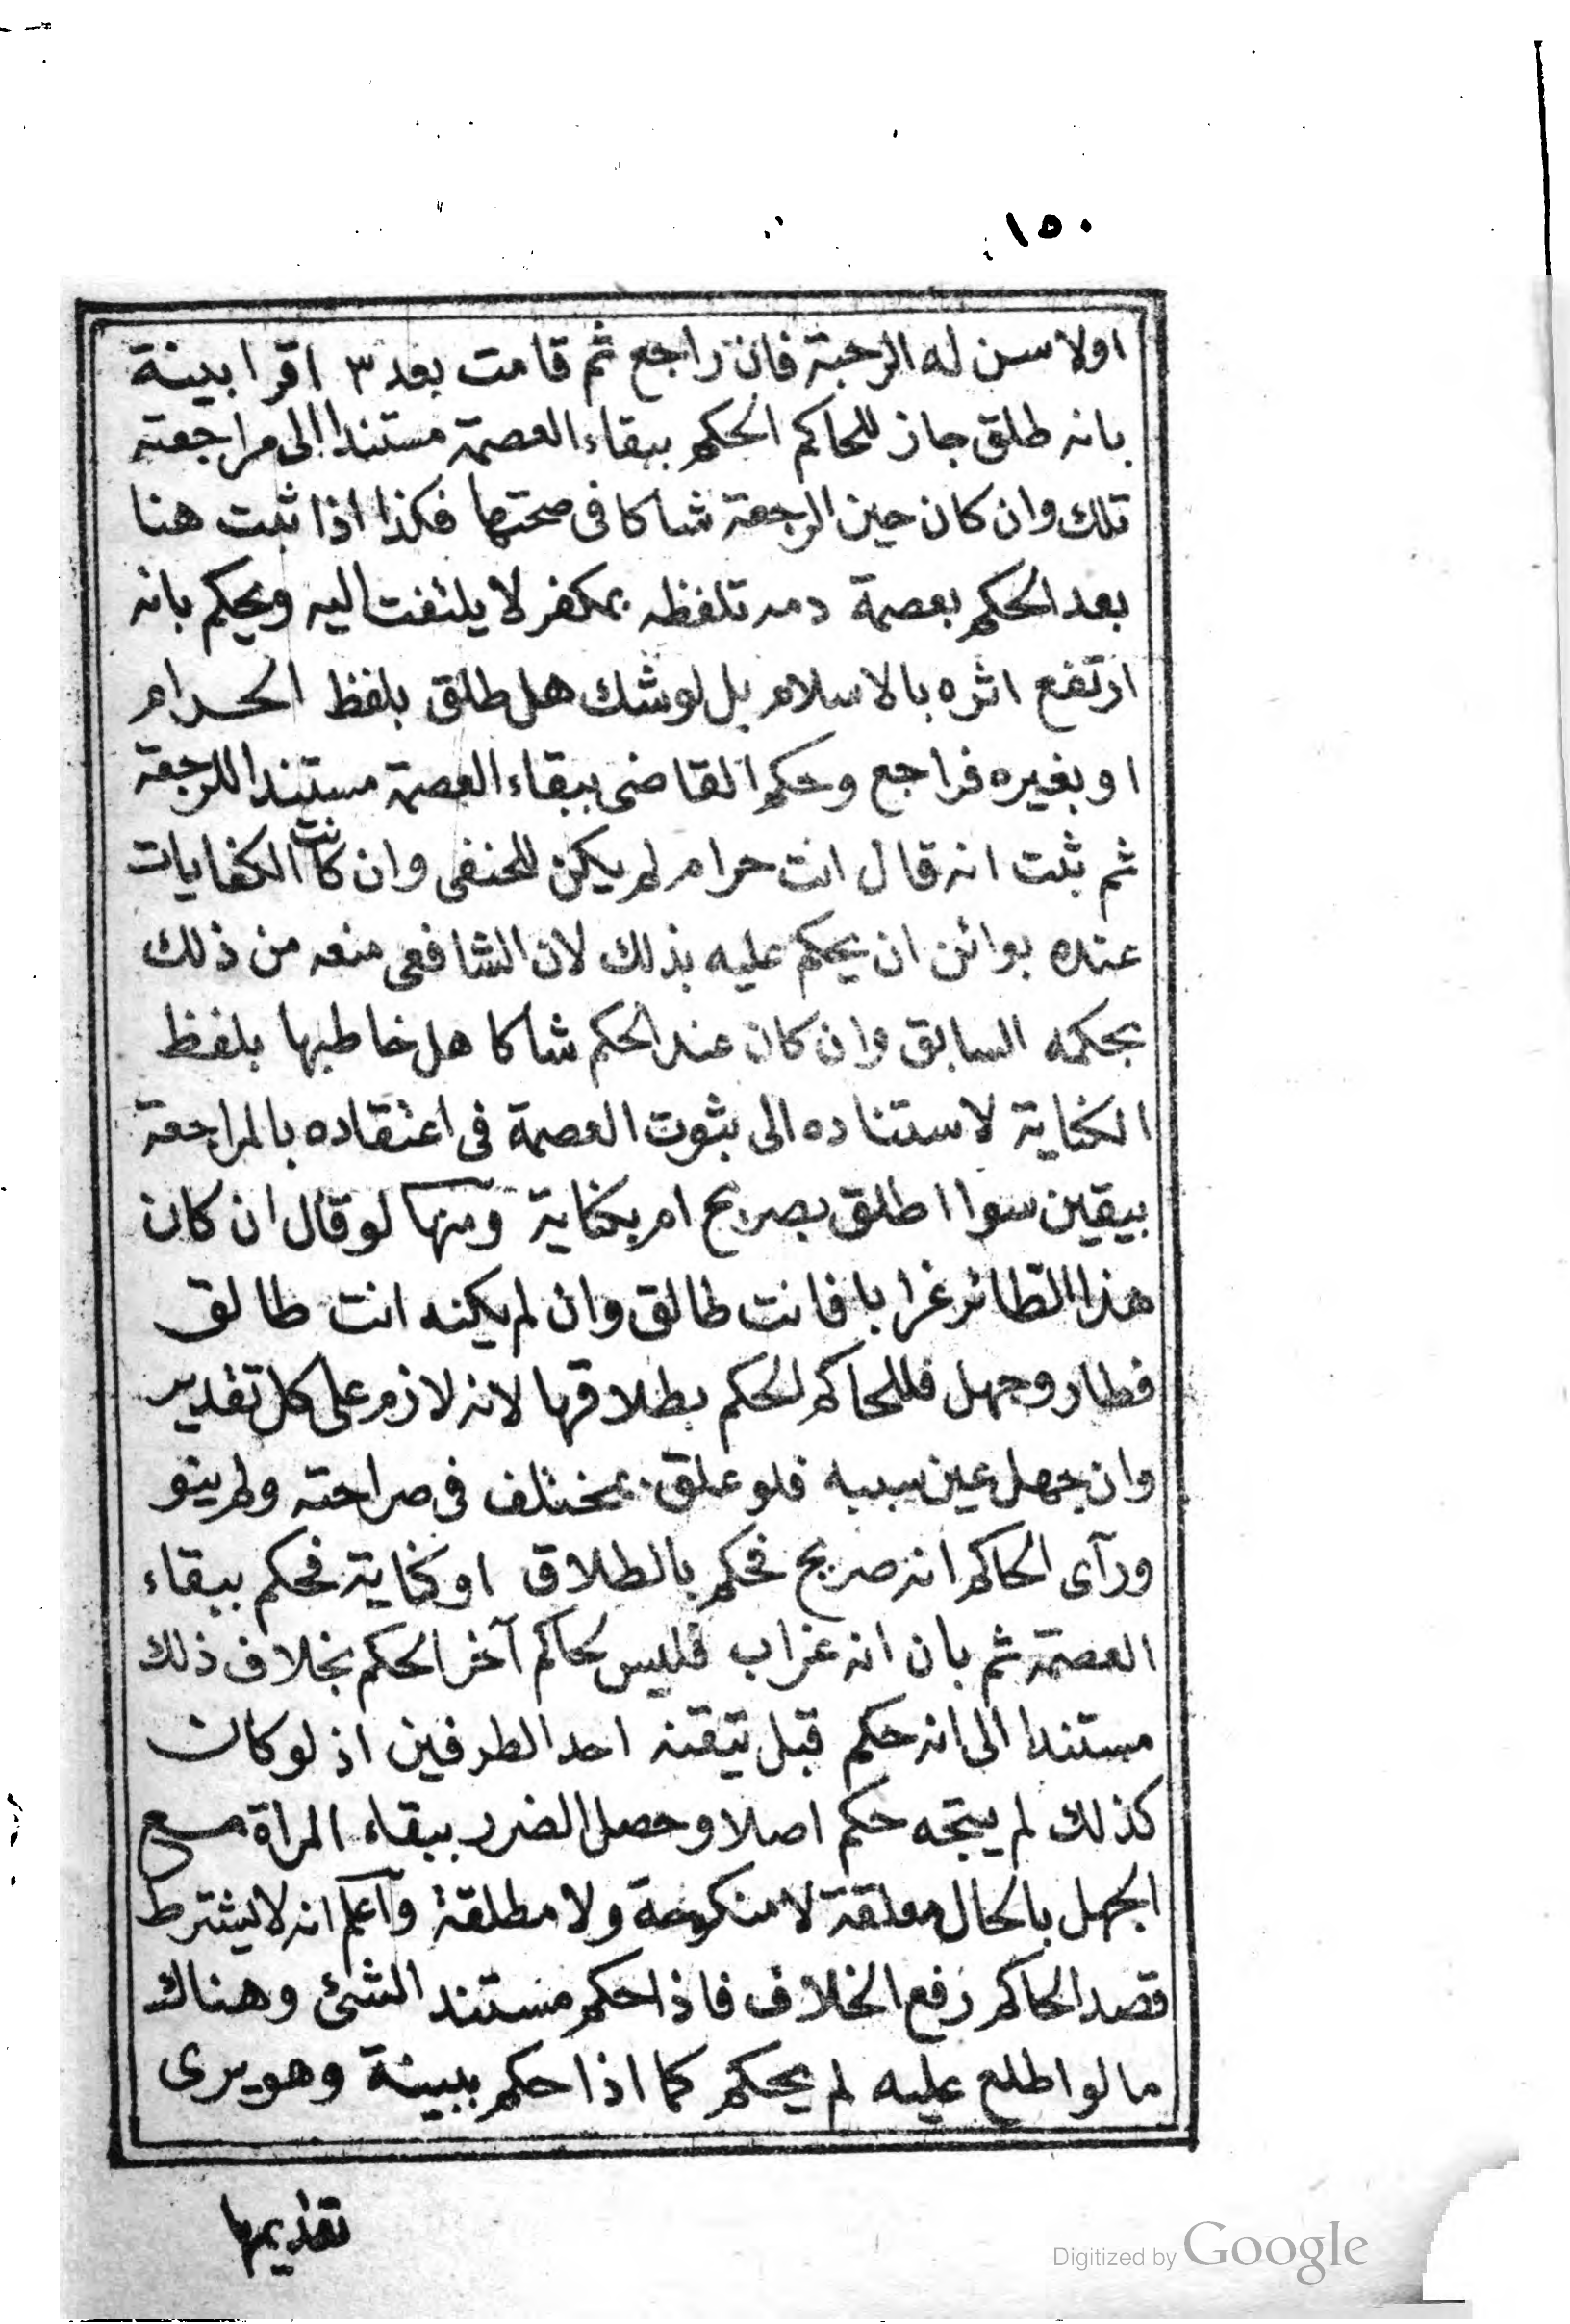 ١٥٠
اولا سن له الرجعة فان راجع ثم قامت بعد ٣ اقرا بينة
بانه طلق جاز للحاكم الحكم ببقاء العصمة مستندا الى مراجعته
تلك وان كان حين الرجعة شاكا فى صحتها فكذا اذا ثبت هنا
بعد الحكم بعصمة دمه تلفظه بمكفر لا يلتفت اليه ويحكم بانه
ارتفع اثره بالاسلام بل لو شك هل طلق بلفظ الحرام
او بغيره فراجع وحكم القاضى ببقاء العصمة مستندا للرجعة
ثم ثبت انه قال انت حرام لم يكن للحنفى وان كانت الكنايات
عنده بوائن ان يحكم عليه بذلك لان الشافعى منعه من ذلك
بحكمه السابق وان كان عند الحكم شاكا هل خاطبها بلفظ
الكناية لاستناده الى ثبوت العصمة فى اعتقاده بالمراجعة
بيقين سوا اطلق بصريح ام بكناية ومنها لو قال ان كان
هذا الطائر غرابا فانت طالق وان لم يكنه انت طالق
فطار وجهل فللحاكم الحكم بطلاقها لانه لازم على كل تقدير
وان جهل عين سببه فلو علق بمختلف فى صراحته ولم ينو
ورآى الحاكم انه صريح فحكم بالطلاق او كناية فحكم ببقاء
العصمة ثم بان انه غراب فليس لحاكم آخر الحكم بخلاف ذلك
مستندا الى انه حكم قبل تيقنه احد الطرفين اذ لو كان
كذلك لم يتجه حكم اصلا وحصل الضرر ببقاء المراة مع
الجهل بالحال معلقة لا منكوحة ولا مطلقة وآعلم انه لا يشترط
قصد الحاكم رفع الخلاف فاذا حكم مستند الشئ وهناك
ما لو اطلع عليه لم يحكم كما اذا حكم ببينة وهو يرى
تقديمها
Digitized by Google